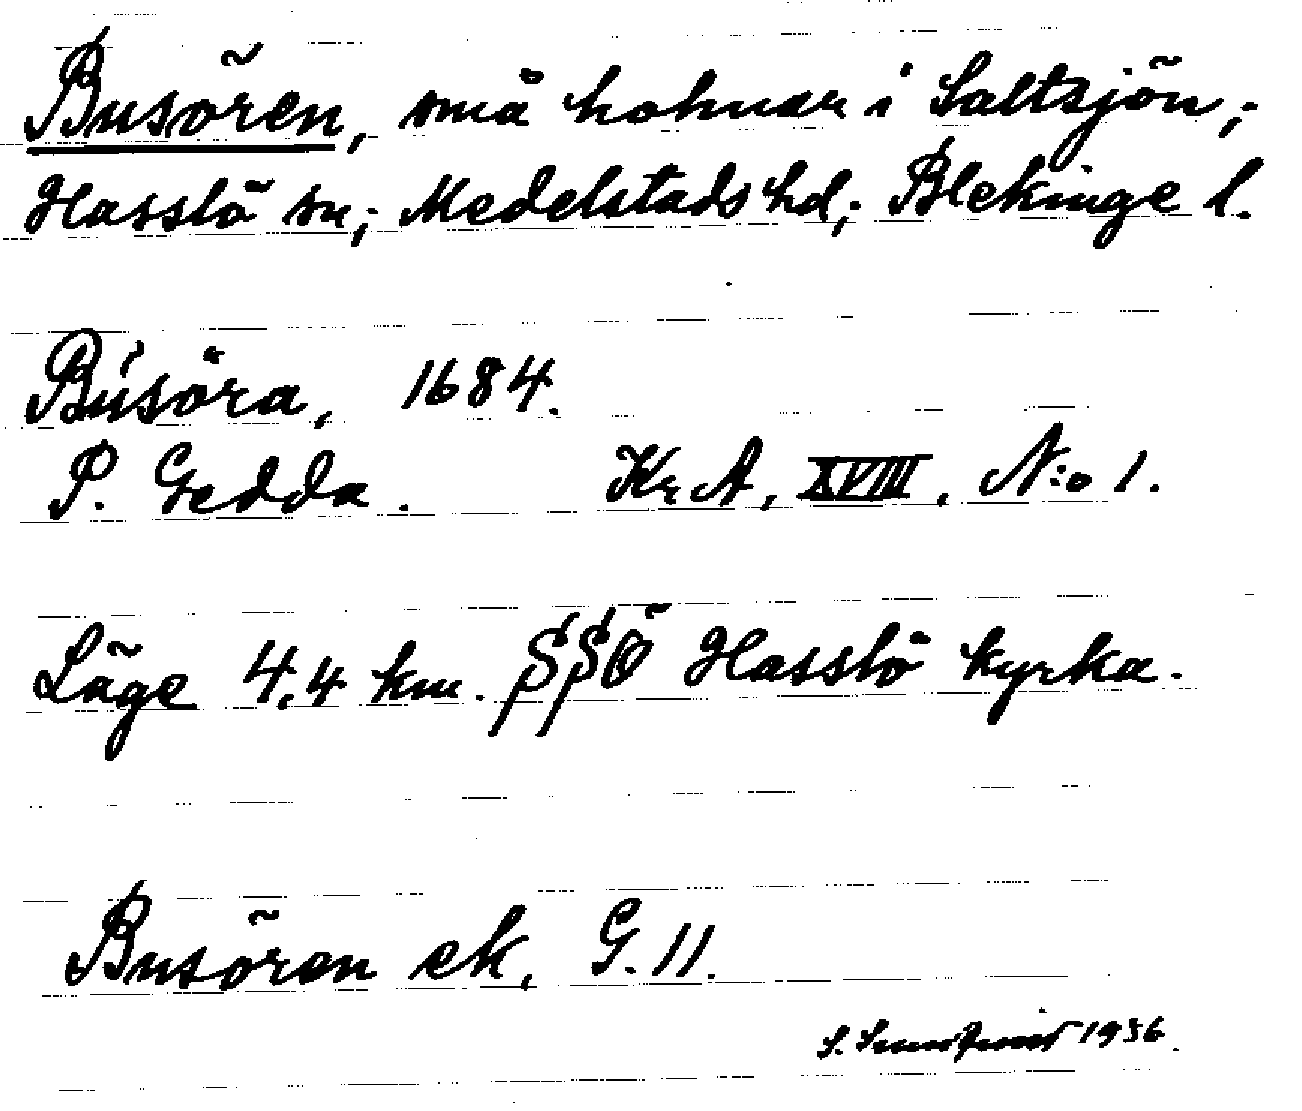 Busören, små holmar i Saltsjön,
Hasslö sn, Medelstads hd, Blekinge l.
Busöra, 1684.
P. Gedda. KrA, XVIII, N:o 1.
Läge 4,4 km. SSÖ Hasslö kyrka.
Busören ek, G. 11.
S. Sundqvist 1936.